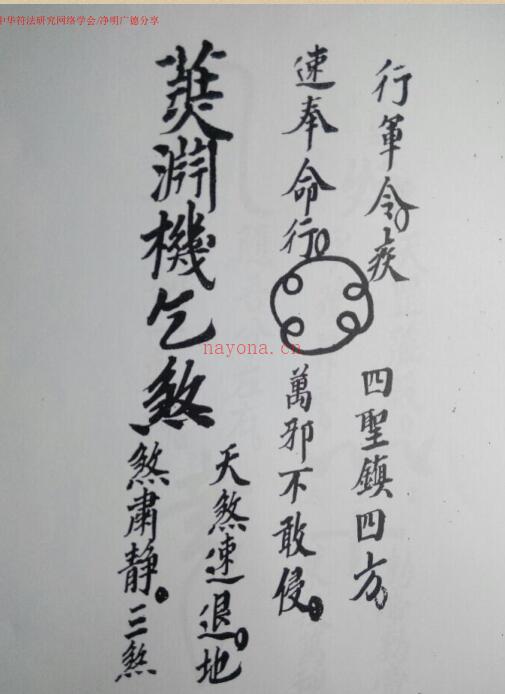 中华符法研究网络学会/净明广德分享
行軍令疾 四聖鎮四方。
速奉命行 萬邪不敢侵。
天煞速退。地
煞肅靜。三煞
機乞煞
nayona.cn